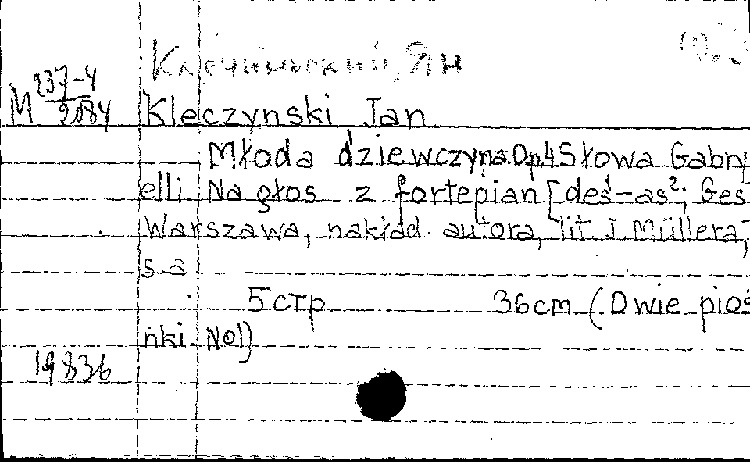 Клечиньский, Ян
M 237-4
9184
Kleczynski Jan
Młoda dziewczyna. Op 4 Słowa Gabry
elli Na głos z fortepian [des¹-as²; Ges
Warszawa, nakład autora, lit J Müllera,
s a
5 стр 36 cm (Dwie pios
nki No1)
19836